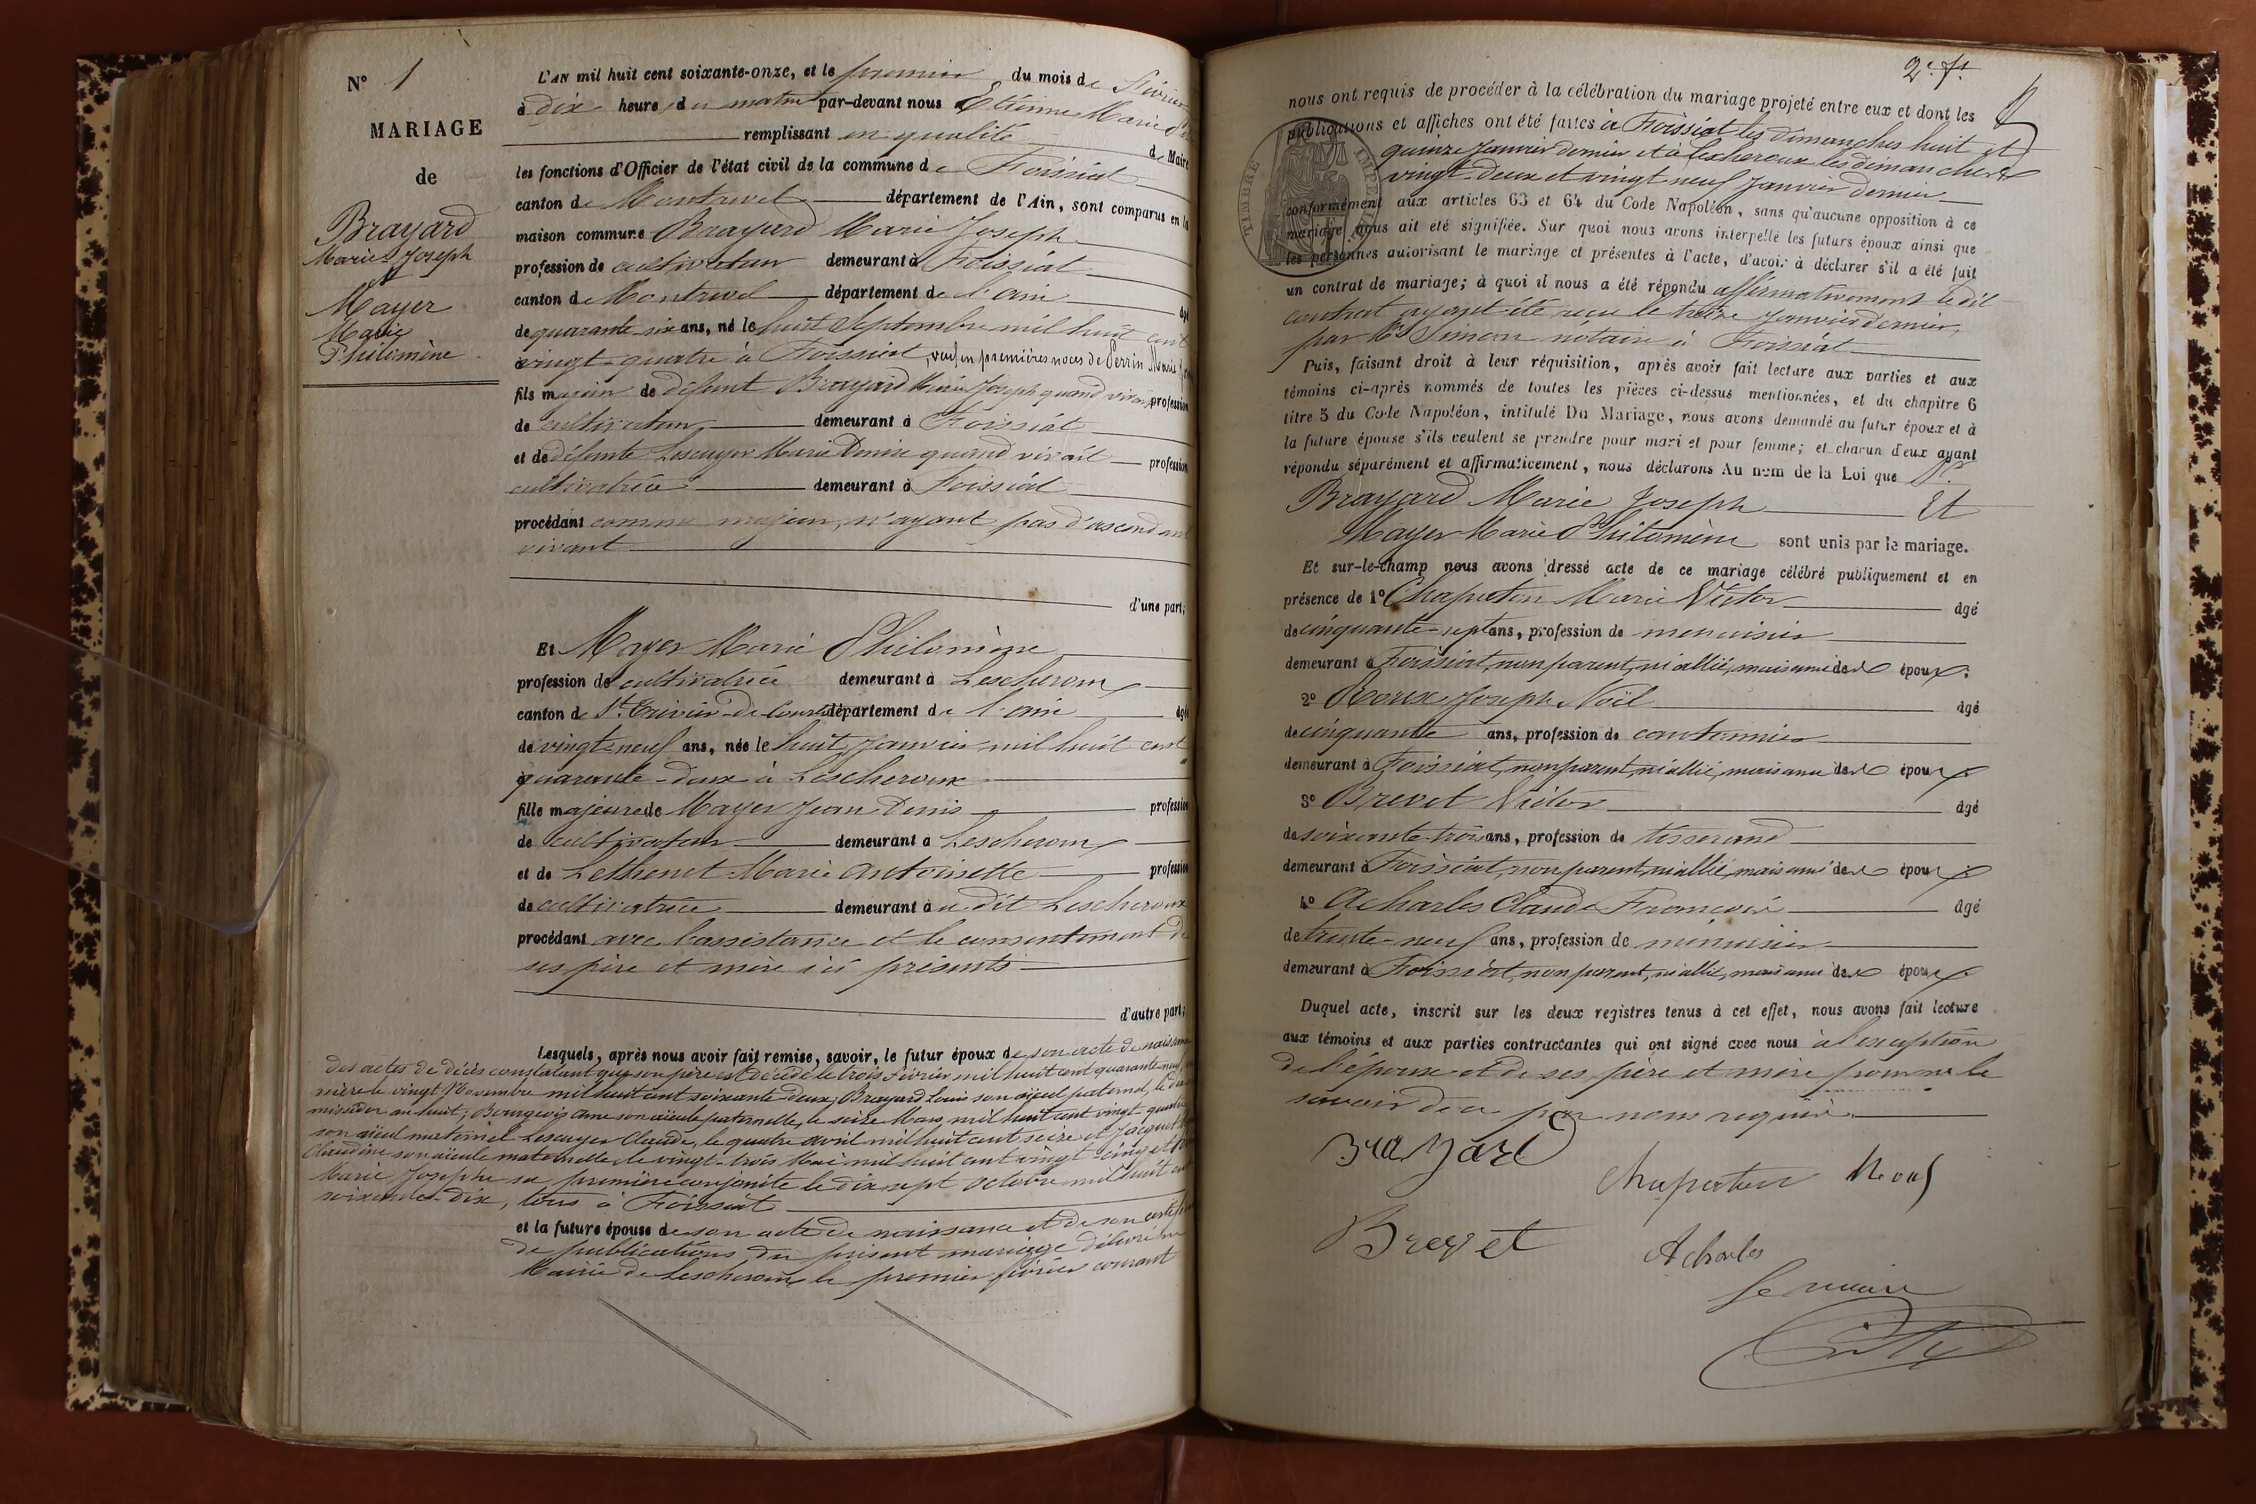 N° 1
MARIAGE
de
Brayard
Marie Joseph
&
Mayer
Marie
Philomène
L'AN mil huit cent soixante-onze, et le premier du mois de Février
à dix heure du matin par-devant nous Etienne Marie
remplissant en qualité de Maire
les fonctions d'Officier de l'état civil de la commune de Foissiat
canton de Montrevel département de l'Ain, sont comparus en la
maison commune Brayard Marie Joseph
profession de cultivateur demeurant à Foissiat
canton de Montrevel département de l'ain âgé
de quarante-six ans, né le huit Septembre mil huit cent
vingt-quatre à Foissiat, veuf en premières noces de Perrin Marie
fils majeur de défunt Brayard Marie Joseph quand vivait profession
de cultivateur demeurant à Foissiat
et de défunte Lescuyer Marie Denise quand vivait profession
cultivatrice demeurant à Foissiat
procédant comme majeur, n'ayant pas d'ascendant
vivant
d'une part;
Et Mayer Marie Philomène
profession de cultivatrice demeurant à Lescheroux
canton de St Trivier-de-Courtes département de l'ain âgée
de vingt-neuf ans, née le huit Janvier mil huit cent
quarante-deux à Lescheroux
fille majeure de Mayer Jean Denis profession
de cultivateur demeurant à Lescheroux
et de Lethenet Marie Antoinette profession
de cultivatrice demeurant à u dit Lescheroux
procédant avec l'assistance et le consentement de
ses père et mère ici présents
d'autre part;
Lesquels, après nous avoir fait remise, savoir, le futur époux de son acte de naissance
des actes de décès constatant que son père est décédé le trois Février mil huit cent quarante neuf,
mère le vingt Novembre mil huit cent soixante deux; Brayard Louis son aïeul paternel, le
messidor an huit; Bourgeois Anne son aïeule paternelle, le seize Mars mil huit cent vingt quatre
son aïeul maternel Lescuyer Claude, le quatre avril mil huit cent seize et Jacquet
Claudine son aïeule maternelle, le vingt-trois Mai mil huit cent vingt-cinq et
Marie Josephe sa première conjointe le dix sept octobre mil huit cent
soixante dix, tous à Foissiat
et la future épouse de son acte de naissance et de son certificat
de publications du présent mariage délivré
Mairie de Lescheroux le premier février courant
2e ft
nous ont requis de procéder à la célébration du mariage projeté entre eux et dont les
publications et affiches ont été faites à Foissiat les dimanches huit et
quinze Janvier dernier et à Lescheroux les dimanches
vingt-deux et vingt neuf Janvier dernier
conformément aux articles 63 et 64 du Code Napoléon, sans qu'aucune opposition à ce
mariage nous ait été signifiée. Sur quoi nous avons interpellé les futurs époux ainsi que
les personnes autorisant le mariage et présentes à l'acte, d'avoir à déclarer s'il a été fait
un contrat de mariage; à quoi il nous a été répondu affirmativement le dit
contrat ayant été reçu le treize Janvier dernier,
par Me Simon notaire à Foissiat
Puis, faisant droit à leur réquisition, après avoir fait lecture aux parties et aux
témoins ci-après nommés de toutes les pièces ci-dessus mentionnées, et du chapitre 6
titre 5 du Code Napoléon, intitulé Du Mariage, nous avons demandé au futur époux et à
la future épouse s'ils veulent se prendre pour mari et pour femme; et chacun d'eux ayant
répondu séparément et affirmativement, nous déclarons Au nom de la Loi que
Brayard Marie Joseph Et
Mayer Marie Philomène sont unis par le mariage.
Et sur-le-champ nous avons dressé acte de ce mariage célébré publiquement et en
présence de 1° Chapeton Marie Victor âgé
de cinquante-sept ans, profession de menuisier
demeurant à Foissiat, non parent, ni allié, mais ami des époux.
2° Roux Joseph Noël âgé
de cinquante ans, profession de cantonnier
demeurant à Foissiat, non parent, ni allié, mais ami des époux
3° Brevet Victor âgé
de soixante-trois ans, profession de tisserand
demeurant à Foissiat, non parent, ni allié, mais ami des époux
4° Acharles Claude François âgé
de trente-neuf ans, profession de menuisier
demeurant à Foissiat, non parent, ni allié, mais ami des époux
Duquel acte, inscrit sur les deux registres tenus à cet effet, nous avons fait lecture
aux témoins et aux parties contractantes qui ont signé avec nous à l'exception
de l'épouse et de ses père et mère pour ne le
savoir de ce par nous requis
Brayard
Chapeton
Brevet
Acharles
Le maire
TIMBRE IMPERIAL